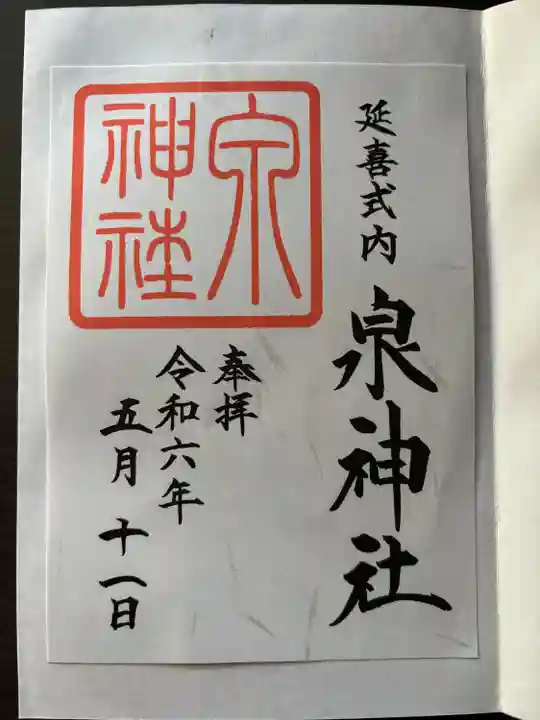 延喜式内
泉神社
泉
神社
奉拝
令和六年
五月十一日